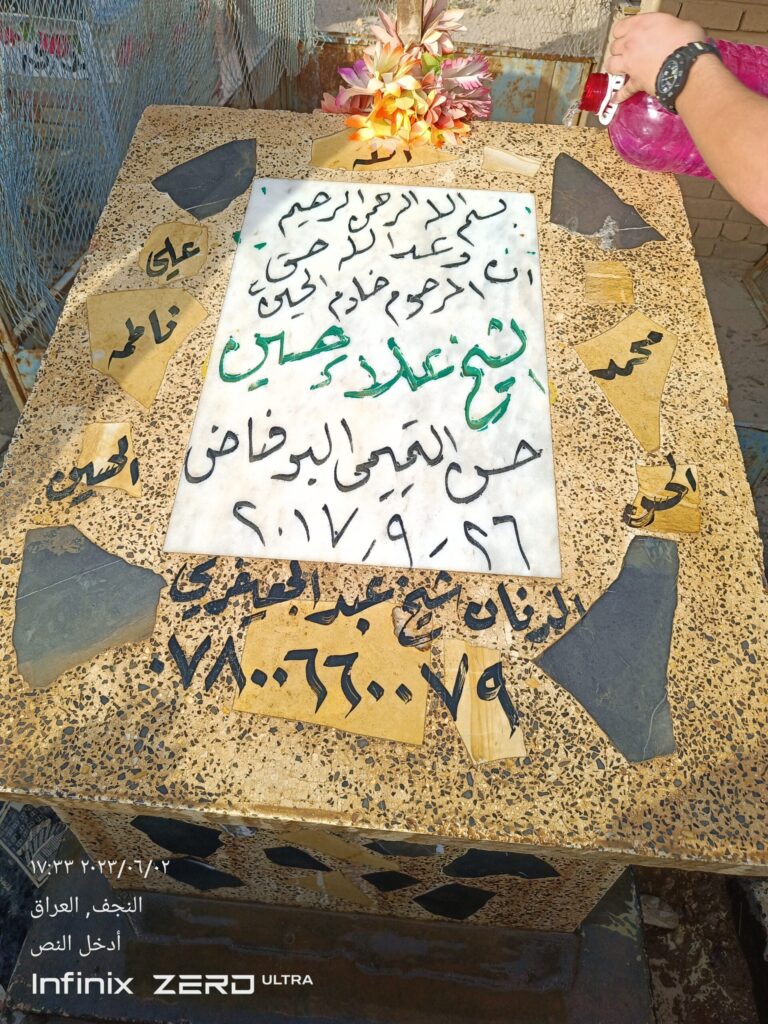 الله
علي
فاطمه
محمد
الحسين
الحسن
بسم الله الرحمن الرحيم
ان وعد الله حق
المرحوم خادم الحسين
الشيخ علاء حسين
حسن التميمي البو فياض
٢٦ - ٩ - ٢٠١٧
الدفان شيخ عبد الجعيفري
٠٧٨٠٠٦٦٠٠٧٩
٢٠٢٣/٠٦/٠٢ ١٧:٣٣
النجف, العراق
أدخل النص
Infinix ZERO ULTRA